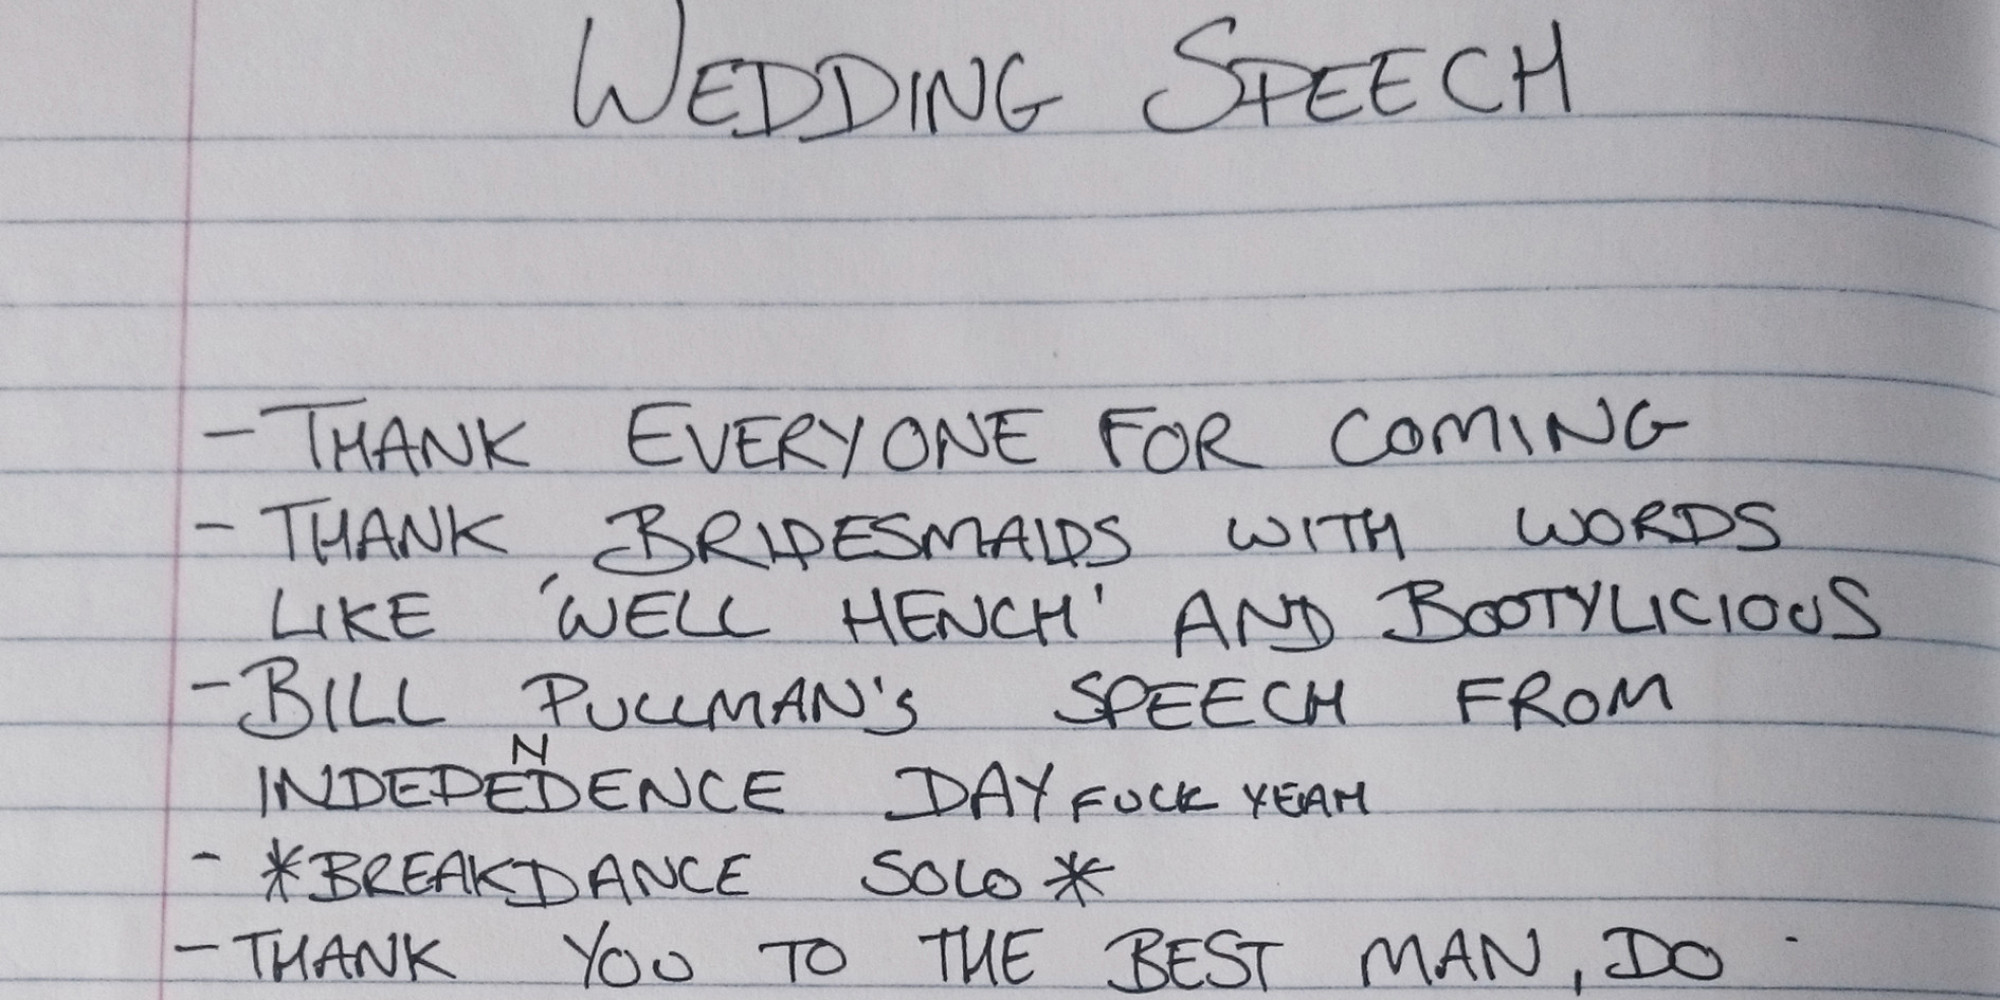 WEDDING SPEECH
- THANK EVERYONE FOR COMING
- THANK BRIDESMAIDS WITH WORDS
LIKE 'WELL HENCH' AND BOOTYLICIOUS
- BILL PULLMAN'S SPEECH FROM
INDEPENDENCE DAY FUCK YEAH
- *BREAKDANCE SOLO*
- THANK YOU TO THE BEST MAN, DO